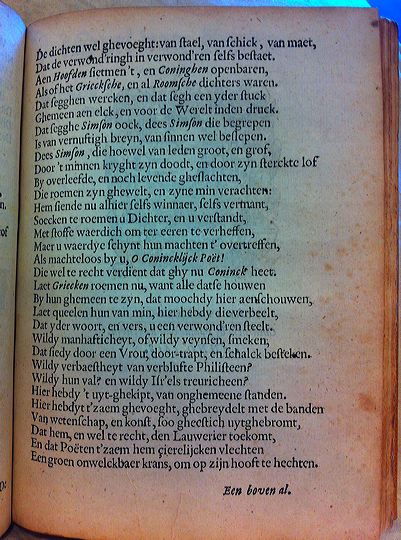 De dichten wel ghevoeght: van stael, van schick, van maet,
Dat de verwond'ringh in verwond'ren selfs bestaet.
Aen Hoofden sietmen't, en Coninghen openbaren,
Als of het Grieksche, en al Roomsche dichters waren.
Dat segghen wercken, en dat segh een yder stuck
Ghemeen aen elck, en voor de Werelt inden druck.
Dat segghe Simson oock, dees Simson die begrepen
Is van vernuftigh breyn, van sinnen wel beslepen.
Dees Simson, die hoewel van leden groot, en grof,
Door 't minnen kryght zyn doodt, en door zyn sterckte lof
By overleefde, en noch levende gheslachten,
Die roemen zyn ghewelt, en zyne min verachten:
Hem siende nu alhier selfs winnaer, selfs vermant,
Soecken te roemen u Dichter, en u verstandt,
Met stoffe waerdich om ter eeren te verheffen,
Maer u waerdye schynt hun machten t'overtreffen,
Als machteloos by u, O Conincklijck Poët!
Die wel te recht verdient dat ghy nu Coninck heet.
Laet Griecken roemen nu, want alle datse houwen
By hun ghemeen te zyn, dat moochdy hier aenschouwen,
Laet queelen hun van min, hier hebdy dieverbeelt,
Dat yder woort, en vers, u een verwond'ren steelt.
Wildy manhafticheyt, of wildy veynsen, smeken,
Dat siedy door een Vrou, door-trapt, en schalck besteken.
Wildy verbaestheyt van verblufte Philisteen?
Wildy hun val? en wildy Ist'els treuricheen?
Hier hebdy 't uyt-ghekipt, van onghemeene standen.
Hier hebdyt t'zaem ghevoeght, ghebreydelt met de banden
Van wetenschap, en konst, soo gheestich uytghebromt,
Dat hem, en wel te recht, den Lauwerier toekomt,
En dat Poëten t'zaem hem çierelijcken vlechten
Een groen onwelckbaer krans, om op zijn hooft te hechten.
Een boven al.